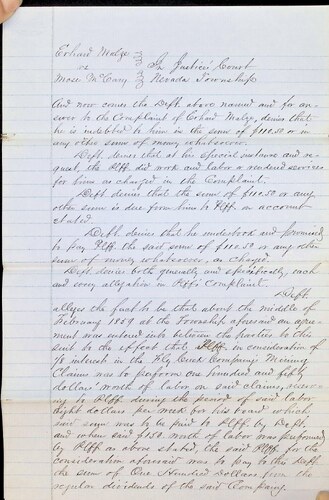 Erhard Malze
vs In Justices' Court
Mose McCary Nevada Township
And now comes the Deft. above named and for an-
swer to the Complaint of Erhard Malze, denies that
he is indebted to him in the sum of $111.50 or in
any other sum of money whatsoever.
Deft. denies that at his special instance and re-
quest, the Plff. did work and labor or rendered services
for him as charged in the Complaint.
Deft. denies that the sum of $111.50 or any
other sum is due from him to Plff. on account
stated.
Deft. denies that he understood and promised
to pay Plff. the said sum of $111.50 or any other
sum of money whatsoever, as charged.
Deft. denies both generally and specifically, each
and every allegation in Plffs Complaint.
Deft.
alleges the fact to be that about the middle of
February 1859 at the Township aforesaid an agree-
ment was entered into between the parties to the
suit to the effect that Plff. in consideration of
1/8 interest in the Company's Mining
Claims was to perform one hundred and fifty
dollars worth of labor on said claims,
to Plff. during the period of said labor
eight dollars per week for his board which
said sum was to be paid to Plff. by Deft.
and when said $150. worth of labor was performed
by Plff as above stated, the said Plff. for the
consideration aforesaid was to pay to this Deft.
the sum of One Hundred Dollars from the
regular dividends of the said Company.